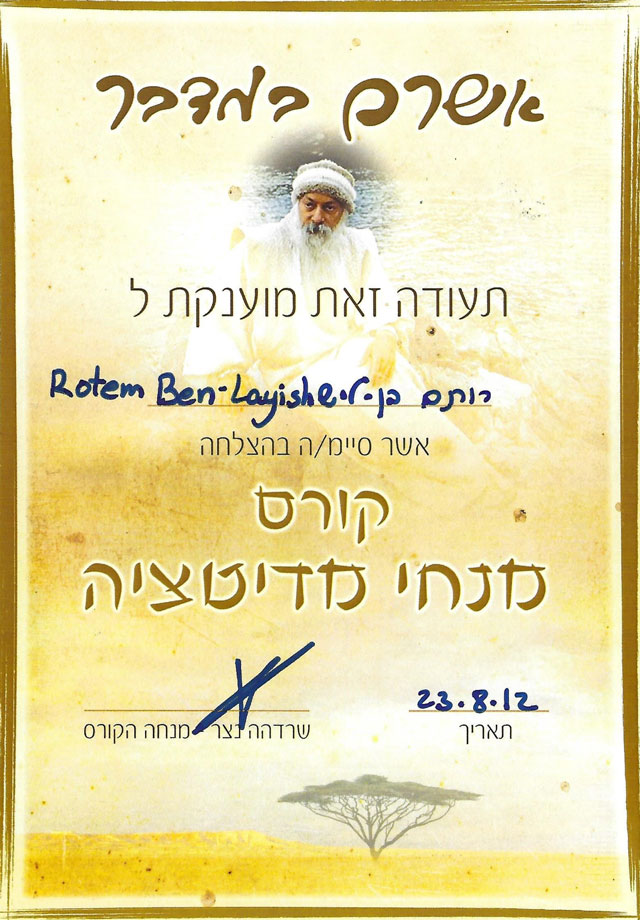 אשרם במדבר
תעודה זאת מוענקת ל
Rotem Ben-Layish רותם בן-ליש
אשר סיימ/ה בהצלחה
קורס
מנחי מדיטציה
23.8.12
שרדהה נצר - מנחה הקורס
תאריך